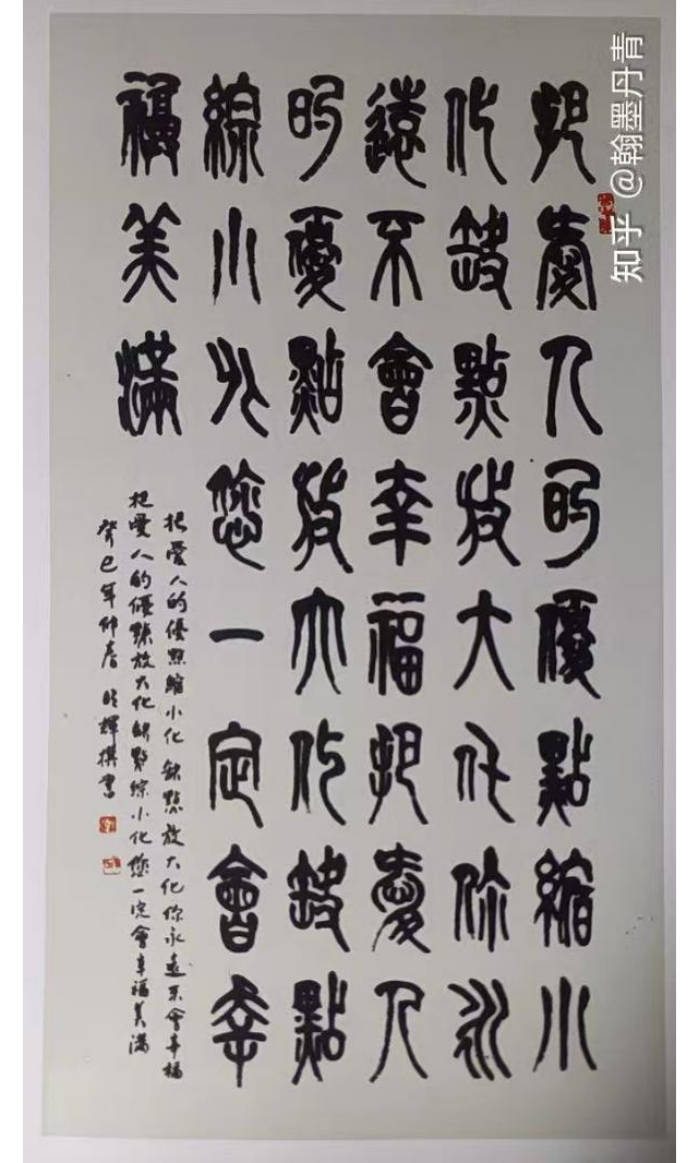 把愛人的優點縮小
化缺點放大化你永
遠不會幸福把愛人
的優點放大化缺點
綜小化您一定會幸
福美滿
把愛人的優點縮小化缺點放大化你永遠不會幸福
把愛人的優點放大化缺點綜小化您一定會幸福美滿
癸巳年仲春 輝撰書
知乎 @翰墨丹青